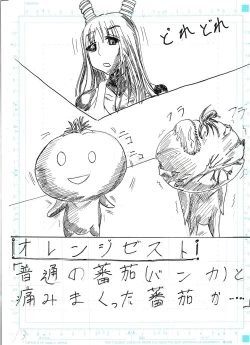 どれどれ
コ
コ
コ
フラ
フラ
オレンジゼスト
「普通の蕃茄(バンカ)と
痛みまくった蕃茄か……」